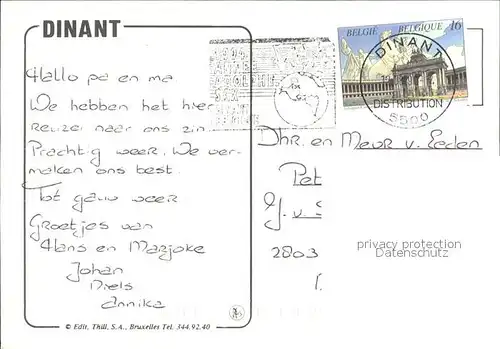 DINANT
Hallo pa en ma
We hebben het hier
reuze naar ons zin
Prachtig weer. We ver-
maken ons best.
Tot gauw weer
Groetjes van
Hans en Marjoke
Johan
Niels
Annika
© Edit. Thill, S.A., Bruxelles Tel. 344.92.40
BELGIE BELGIQUE 16
DINANT
DISTRIBUTION
5500
Dhr. en Mevr v. Eeden
Pet
J. v.
2803
privacy protection
Datenschutz